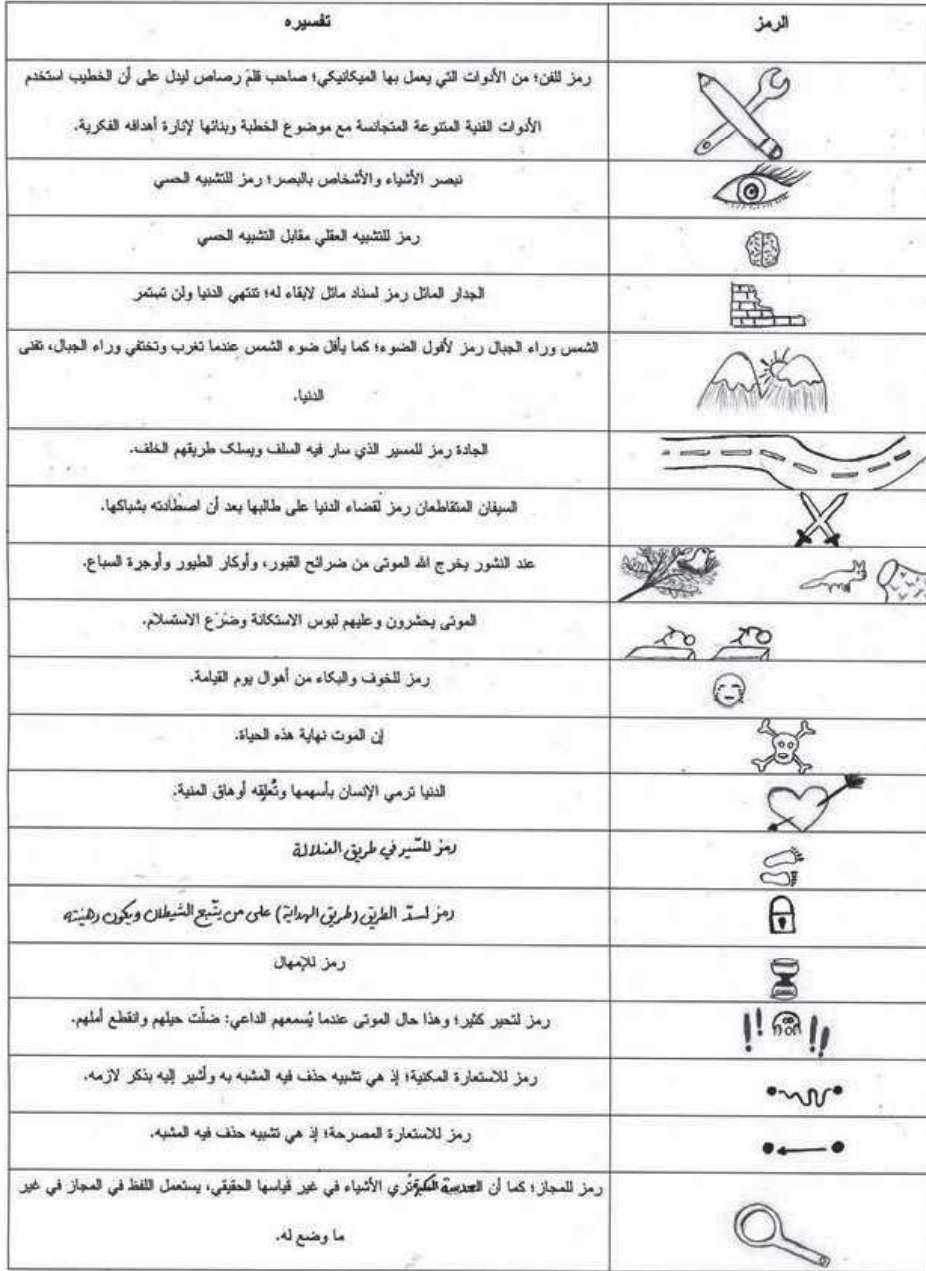 الرمز
تفسيره
رمز للفن؛ من الأدوات التي يعمل بها الميكانيكي؛ صاحب قلمَ رصاص ليدل على أن الخطيب استخدم
الأدوات الفنية المتنوعة المتجانسة مع موضوع الخطبة وبنائها لإنارة أهدافه الفكرية.
نبصر الأشياء والأشخاص بالبصر؛ رمز للتشبيه الحسي
رمز للتشبيه العقلي مقابل التشبيه الحسي
الجدار المائل رمز لسناد مائل لابقاء له؛ تنتهي الدنيا ولن تستمر
الشمس وراء الجبال رمز لأفول الضوء؛ كما يأفل ضوء الشمس عندما تغرب وتختفي وراء الجبال، تفنى
الدنيا.
الجادة رمز للمسير الذي سار فيه السلف ويسلك طريقهم الخلف.
السيفان المتقاطعان رمز لقضاء الدنيا على طالبها بعد أن اصطادته بشباكها.
عند النشور يخرج الله الموتى من ضرائح القبور، وأوكار الطيور وأوجرة السباع.
الموتى يحشرون وعليهم لبوس الاستكانة وضَرَع الاستسلام.
رمز للخوف والبكاء من أهوال يوم القيامة.
إن الموت نهاية هذه الحياة.
الدنيا ترمي الإنسان بأسهمها وتُعلِقه أوهاق المنية.
رمز للسّير في طريق الضلالة
رمز لسدّ الطريق (طريق الهداية) على من يتّبع الشيطان ويكون رهينته
رمز للإمهال
رمز لتحير كثير؛ وهذا حال الموتى عندما يُسمعهم الداعي: ضلّت حيلهم وانقطع أملهم.
رمز للاستعارة المكنية؛ إذ هي تشبيه حذف فيه المشبه به وأشير إليه بذكر لازمه.
رمز للاستعارة المصرحة؛ إذ هي تشبيه حذف فيه المشبه.
رمز للمجاز؛ كما أن العدسة تُري الأشياء في غير قياسها الحقيقي، يستعمل اللفظ في المجاز في غير
ما وضع له.